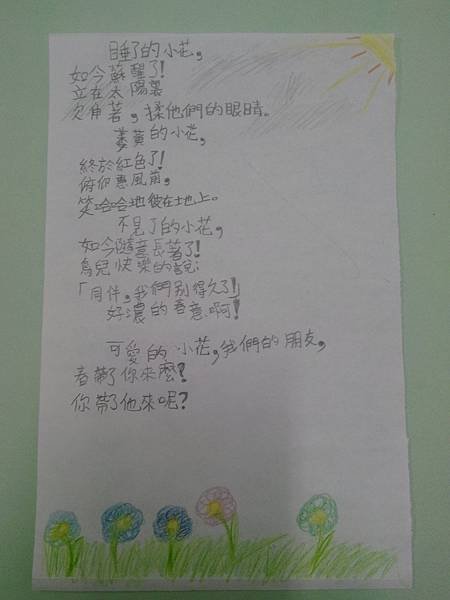 睡了的小花,
如今蘇醒了!
立在太陽裏
欠伸著,揉他們的眼睛。
萎黃的小花,
終於紅色了!
俯仰惠風前,
笑哈哈地彼在土地上。
不見了的小花,
如今隨意長著了!
鳥兒快樂的說:
「同伴,我們別得久了!」
好濃的春意啊!
可愛的小花,我們的朋友,
春帶了你來麼?
你帶了他來呢?